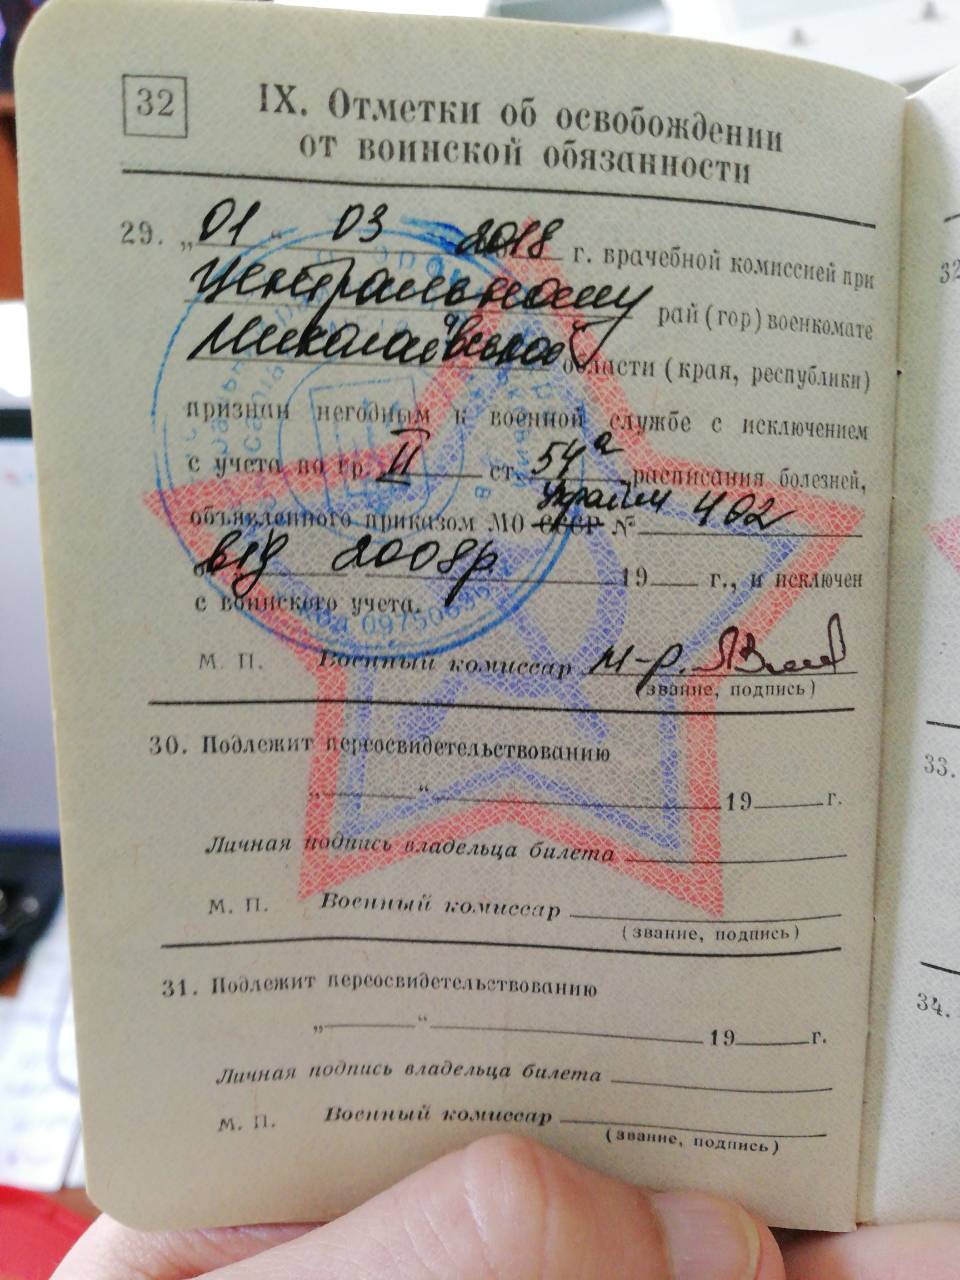 32
IX. Отметки об освобождении
от воинской обязанности
29. „01“ 03 2018 г. врачебной комиссией при
Центральному рай (гор) военкомате
Миколаївської області (края, республики)
признан негодным к военной службе с исключением
с учета по гр. II ст. 54а расписания болезней,
объявленного приказом МО СССР України № 402
від 2008р. 19 г., и исключен
с воинского учета.
М. П. Военный комиссар м-р.
(звание, подпись)
30. Подлежит переосвидетельствованию
„ “ 19 г.
Личная подпись владельца билета
М. П. Военный комиссар
(звание, подпись)
31. Подлежит переосвидетельствованию
„ “ 19 г.
Личная подпись владельца билета
М. П. Военный комиссар
(звание, подпись)
32
33.
34.